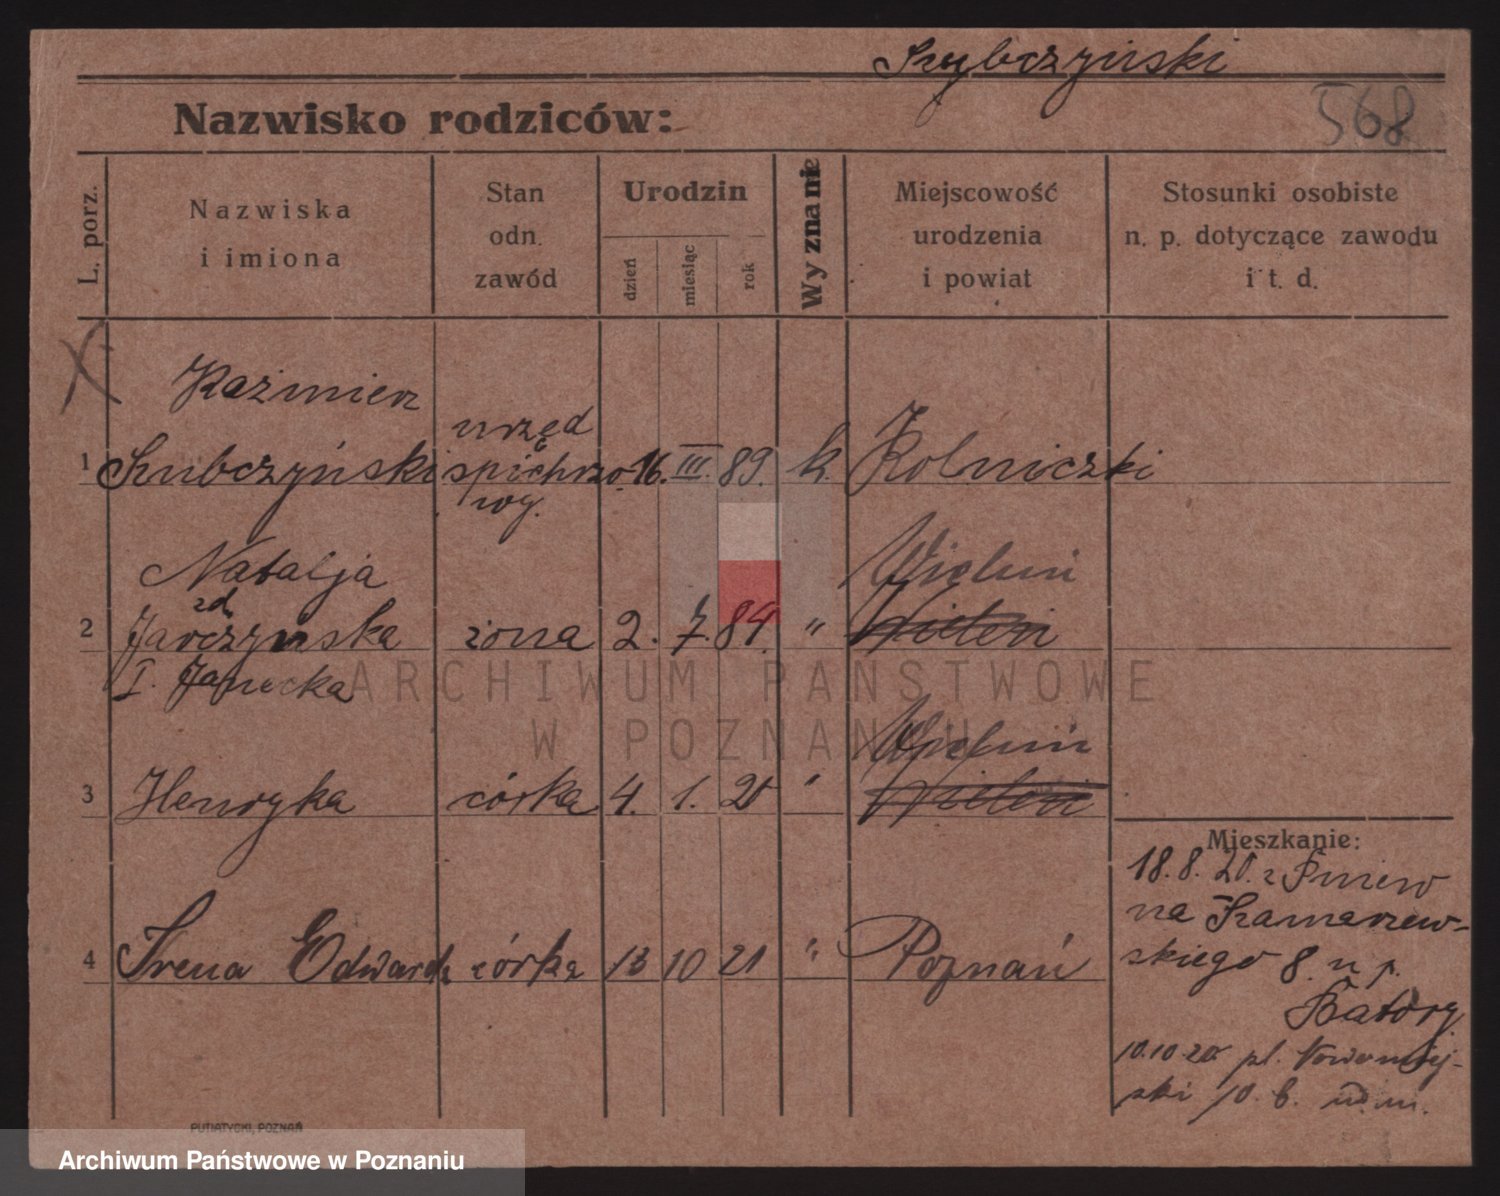 Szubczyński
Nazwisko rodziców:
568
L. porz.
Nazwiska
i imiona
Stan
odn.
zawód
Urodzin
dzień
miesiąc
rok
Wyznanie
Miejscowość
urodzenia
i powiat
Stosunki osobiste
n. p. dotyczące zawodu
i t. d.
X
Kaźmierz
urzęd
1 Szubczyński spichrzo- 16. III. 89. k. Kolniczki
wy.
Natalja Wieluń
zd.
2 Jarczyńska żona 2. 7. 84. " Wieleń
I. Janecka
Wieluń
3 Henryka córka 4. 1. 20 " Wieleń
4 Irena Edwarda córka 13 10 21 " Poznań
Mieszkanie:
18.8.20. z Pniew
na Szamarzew-
skiego 8. u p.
Batory
10.10.20 pl. Nowomiej-
ski 10. b.
PUTIATYCKI, POZNAŃ
ARCHIWUM PAŃSTWOWE
W POZNANIU
Archiwum Państwowe w Poznaniu